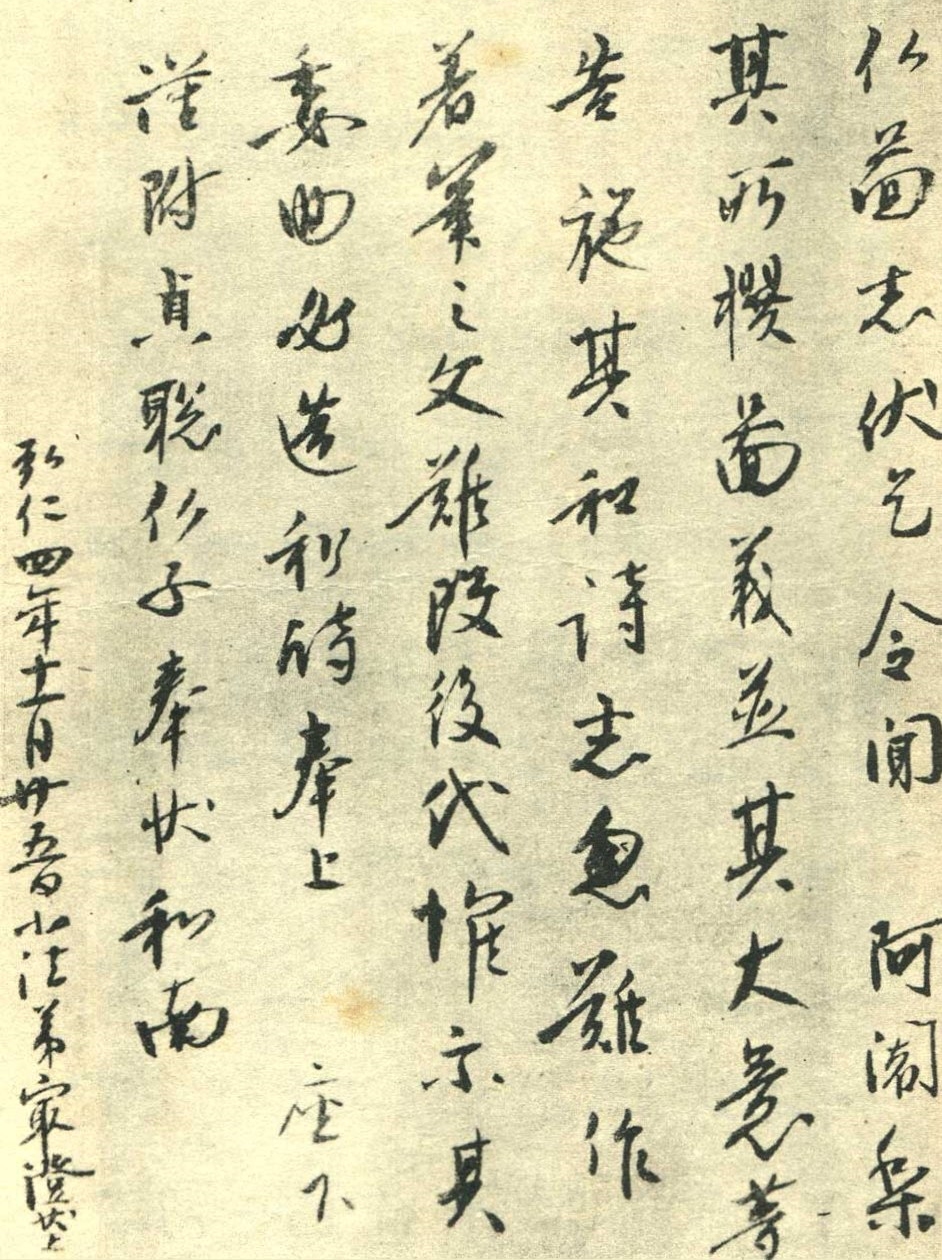 仏圖者伏乞令聞 阿闍梨
其所撰圖義並其大意等
告施其和詩者忽難作
著筆之文難改後代惟示其
委曲必造和詩奉上 座下
謹附貞聡仏子奉状和南
弘仁四年十一月廿五日小法弟最澄状上